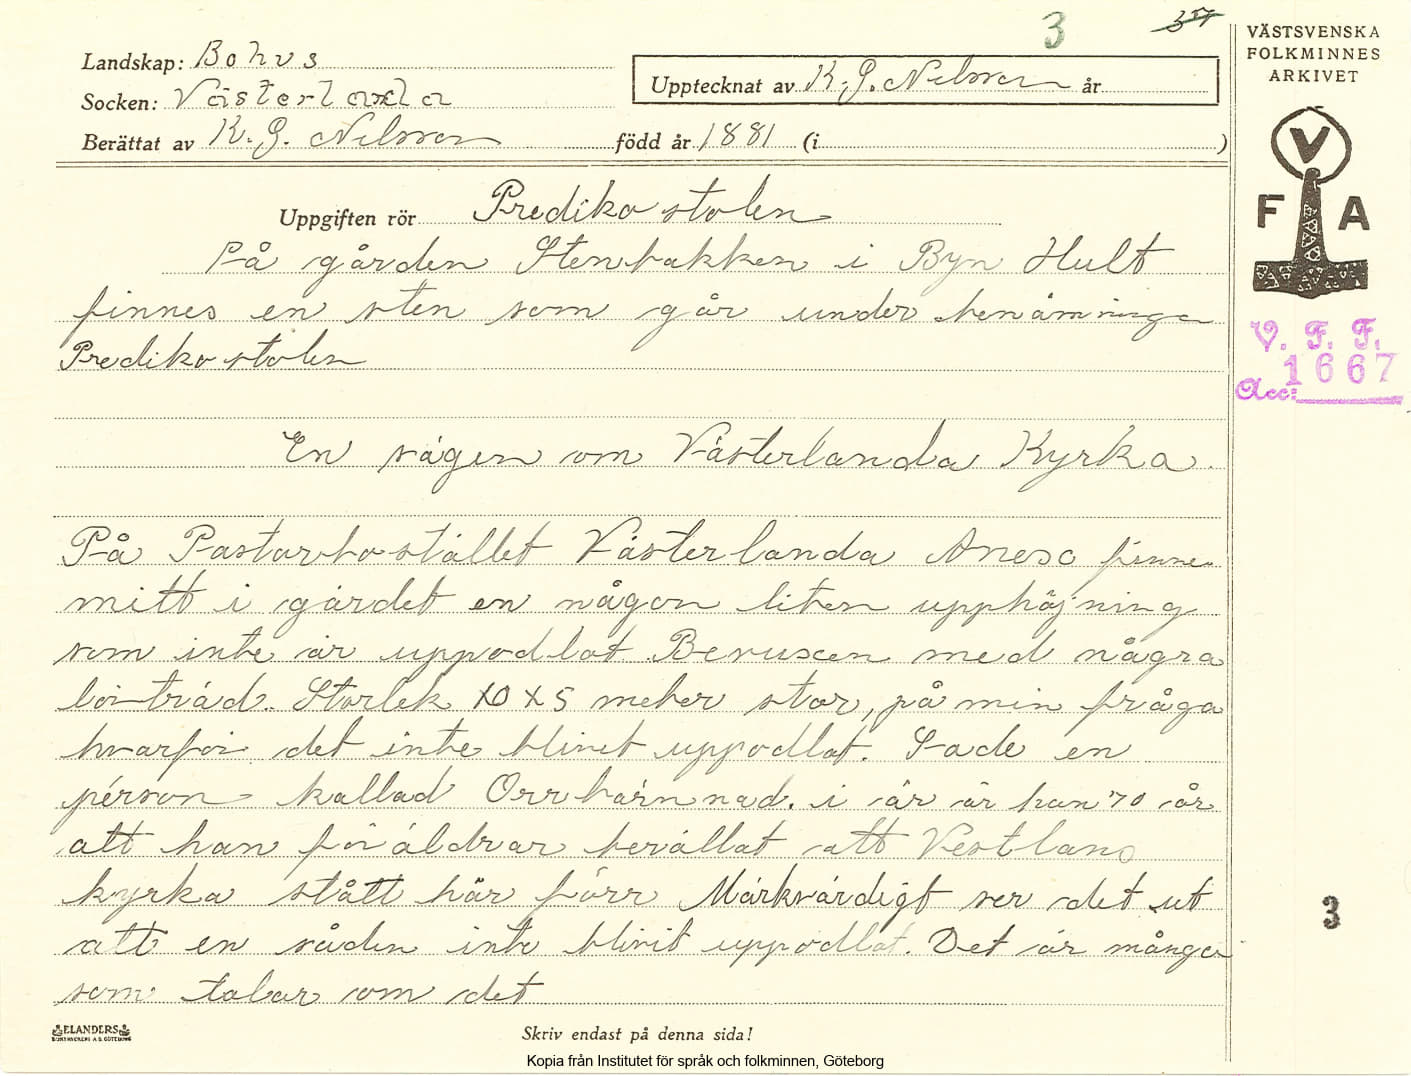 3 357
Landskap: Bohus
Socken: Västerlanda
Upptecknat av K. G. Nilsson år
Berättat av K. G. Nilsson född år 1881 (i )
VÄSTSVENSKA
FOLKMINNES
ARKIVET
V
F A
V. F. F.
Acc: 1667
Uppgiften rör Predikostolen
På gården Stenbakken i Byn Hult
finnes en sten som går under benämninge
Predikostolen
En sägen om Västerlanda Kyrka.
På Pastorbostället Västerlanda finnes
mitt i gärdet en någon liten upphöjning
som inte är uppodlat. Bevuxen med några
lövträd. Storlek 10 x 5 meter stor, på min fråga
hvarför det inte blivet uppodlat. Sade en
person kallad Orrbärnnad. i år är han 70 år
att han föräldrar berällat att Vestland
kyrka stått här förr Märkvärdigt ser det ut
att en såden inte blivit uppodlat. Det är många
som talar om det
3
ELANDERS
BOKTRYCKERI A.B. GÖTEBORG
Skriv endast på denna sida!
Kopia från Institutet för språk och folkminnen, Göteborg